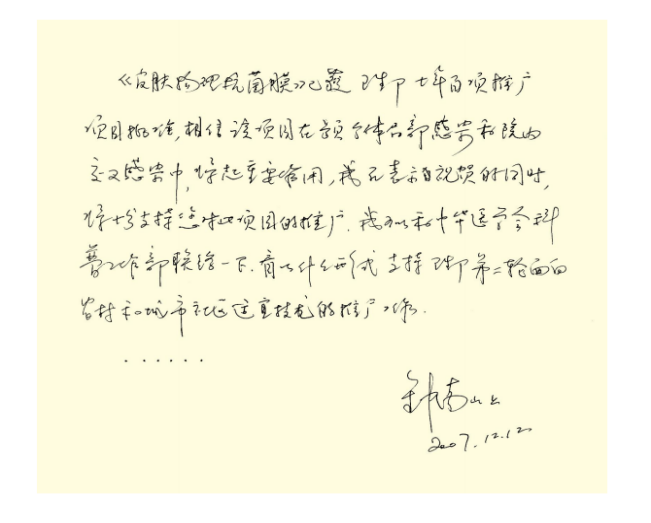 《皮肤物理抗菌膜》已获卫生部十年百项推广
项目批准,相信该项目在预防体表部感染和院内
交叉感染中,将起重要作用,我在表示祝贺的同时,
将十分支持您对此项目的推广。我可以和中华医学会科
普工作部联络一下,看以什么形式支持卫生部第二轮面向
农村和城市社区适宜技术的推广工作。
......
钟南山上
2007.12.12